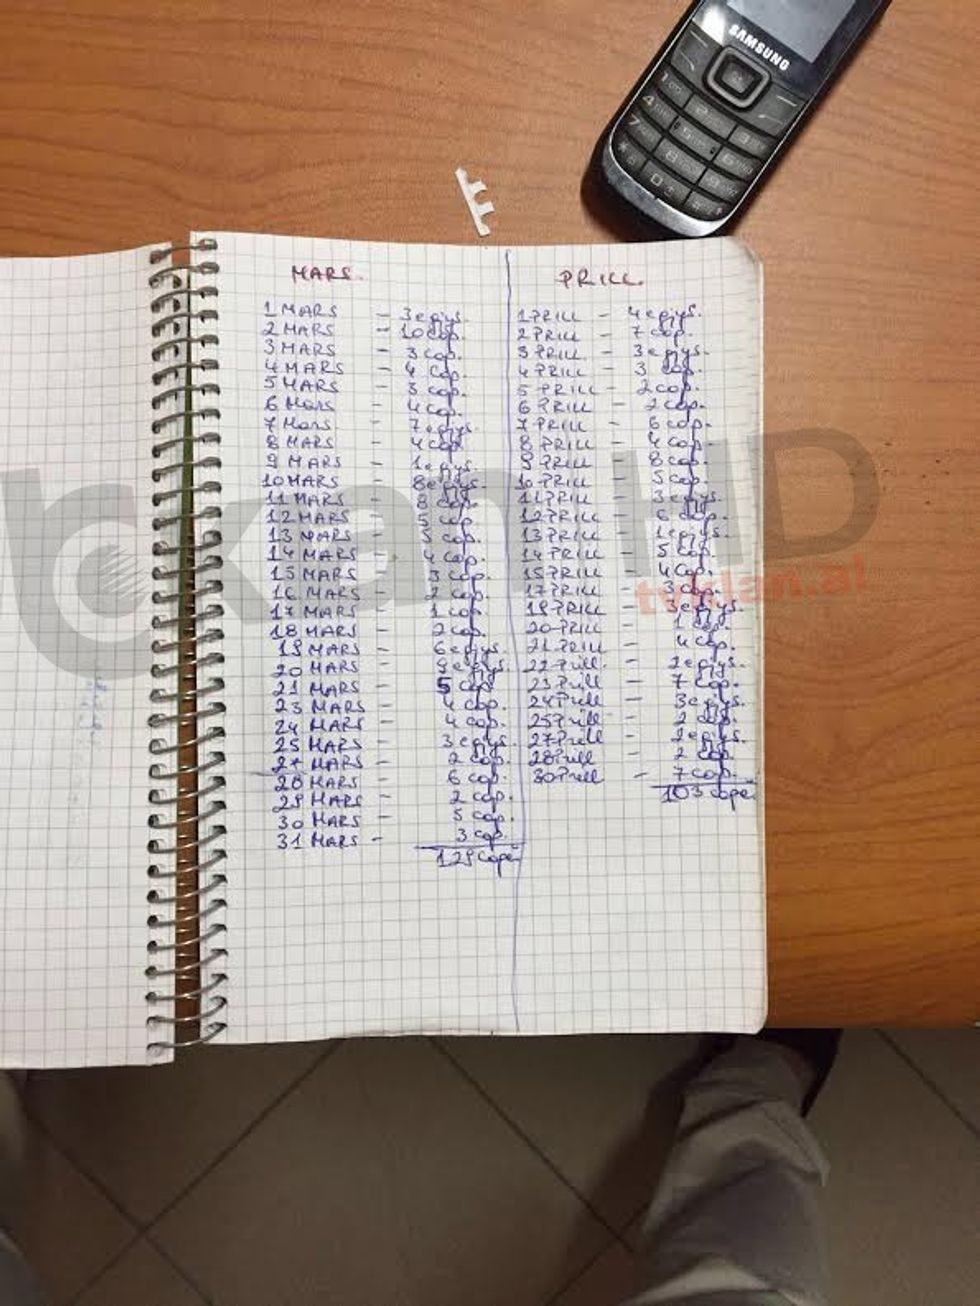 SAMSUNG
MARS.
1 MARS - 3 egjys.
2 MARS - 10 cop.
3 MARS - 3 cop.
4 MARS - 4 cop.
5 MARS - 3 cop.
6 Mars - 4 cop.
7 Mars - 7 egjys.
8 MARS - 4 cop.
9 MARS - 1 egjys.
10 MARS - 8 egjys.
11 MARS - 8 cop.
12 MARS - 5 cop.
13 MARS - 5 cop.
14 MARS - 4 cop.
15 MARS - 3 cop.
16 MARS - 2 cop.
17 MARS - 1 cop.
18 MARS - 2 cop.
19 MARS - 6 egjys.
20 MARS - 9 egjys.
21 MARS - 5 cop.
23 MARS - 4 cop.
24 MARS - 4 cop.
25 MARS - 3 egjys.
27 MARS - 2 cop.
28 MARS - 6 cop.
29 MARS - 2 cop.
30 MARS - 5 cop.
31 MARS - 3 cop.
129 cope
PRILL.
1 PRILL - 4 egjys.
2 PRILL - 7 cop.
3 PRILL - 3 egjys.
4 PRILL - 3 cop.
5 PRILL - 2 cop.
6 PRILL - 2 cop.
7 PRILL - 6 cop.
8 PRILL - 4 cop.
9 PRILL - 8 cop.
10 PRILL - 5 cop.
11 PRILL - 3 egjys.
12 PRILL - 6 cop.
13 PRILL - 1 egjys.
14 PRILL - 5 cop.
15 PRILL - 4 cop.
17 PRILL - 3 cop.
19 PRILL - 3 egjys.
20 PRILL - 1 cop.
21 PRILL - 4 cop.
22 Prill - 2 egjys.
23 Prill - 7 cop.
24 Prill - 3 egjys.
25 Prill - 2 cop.
27 Prill - 2 egjys.
28 Prill - 2 cop
30 Prill - 7 cop.
103 cope
klan HD
tvklan.al